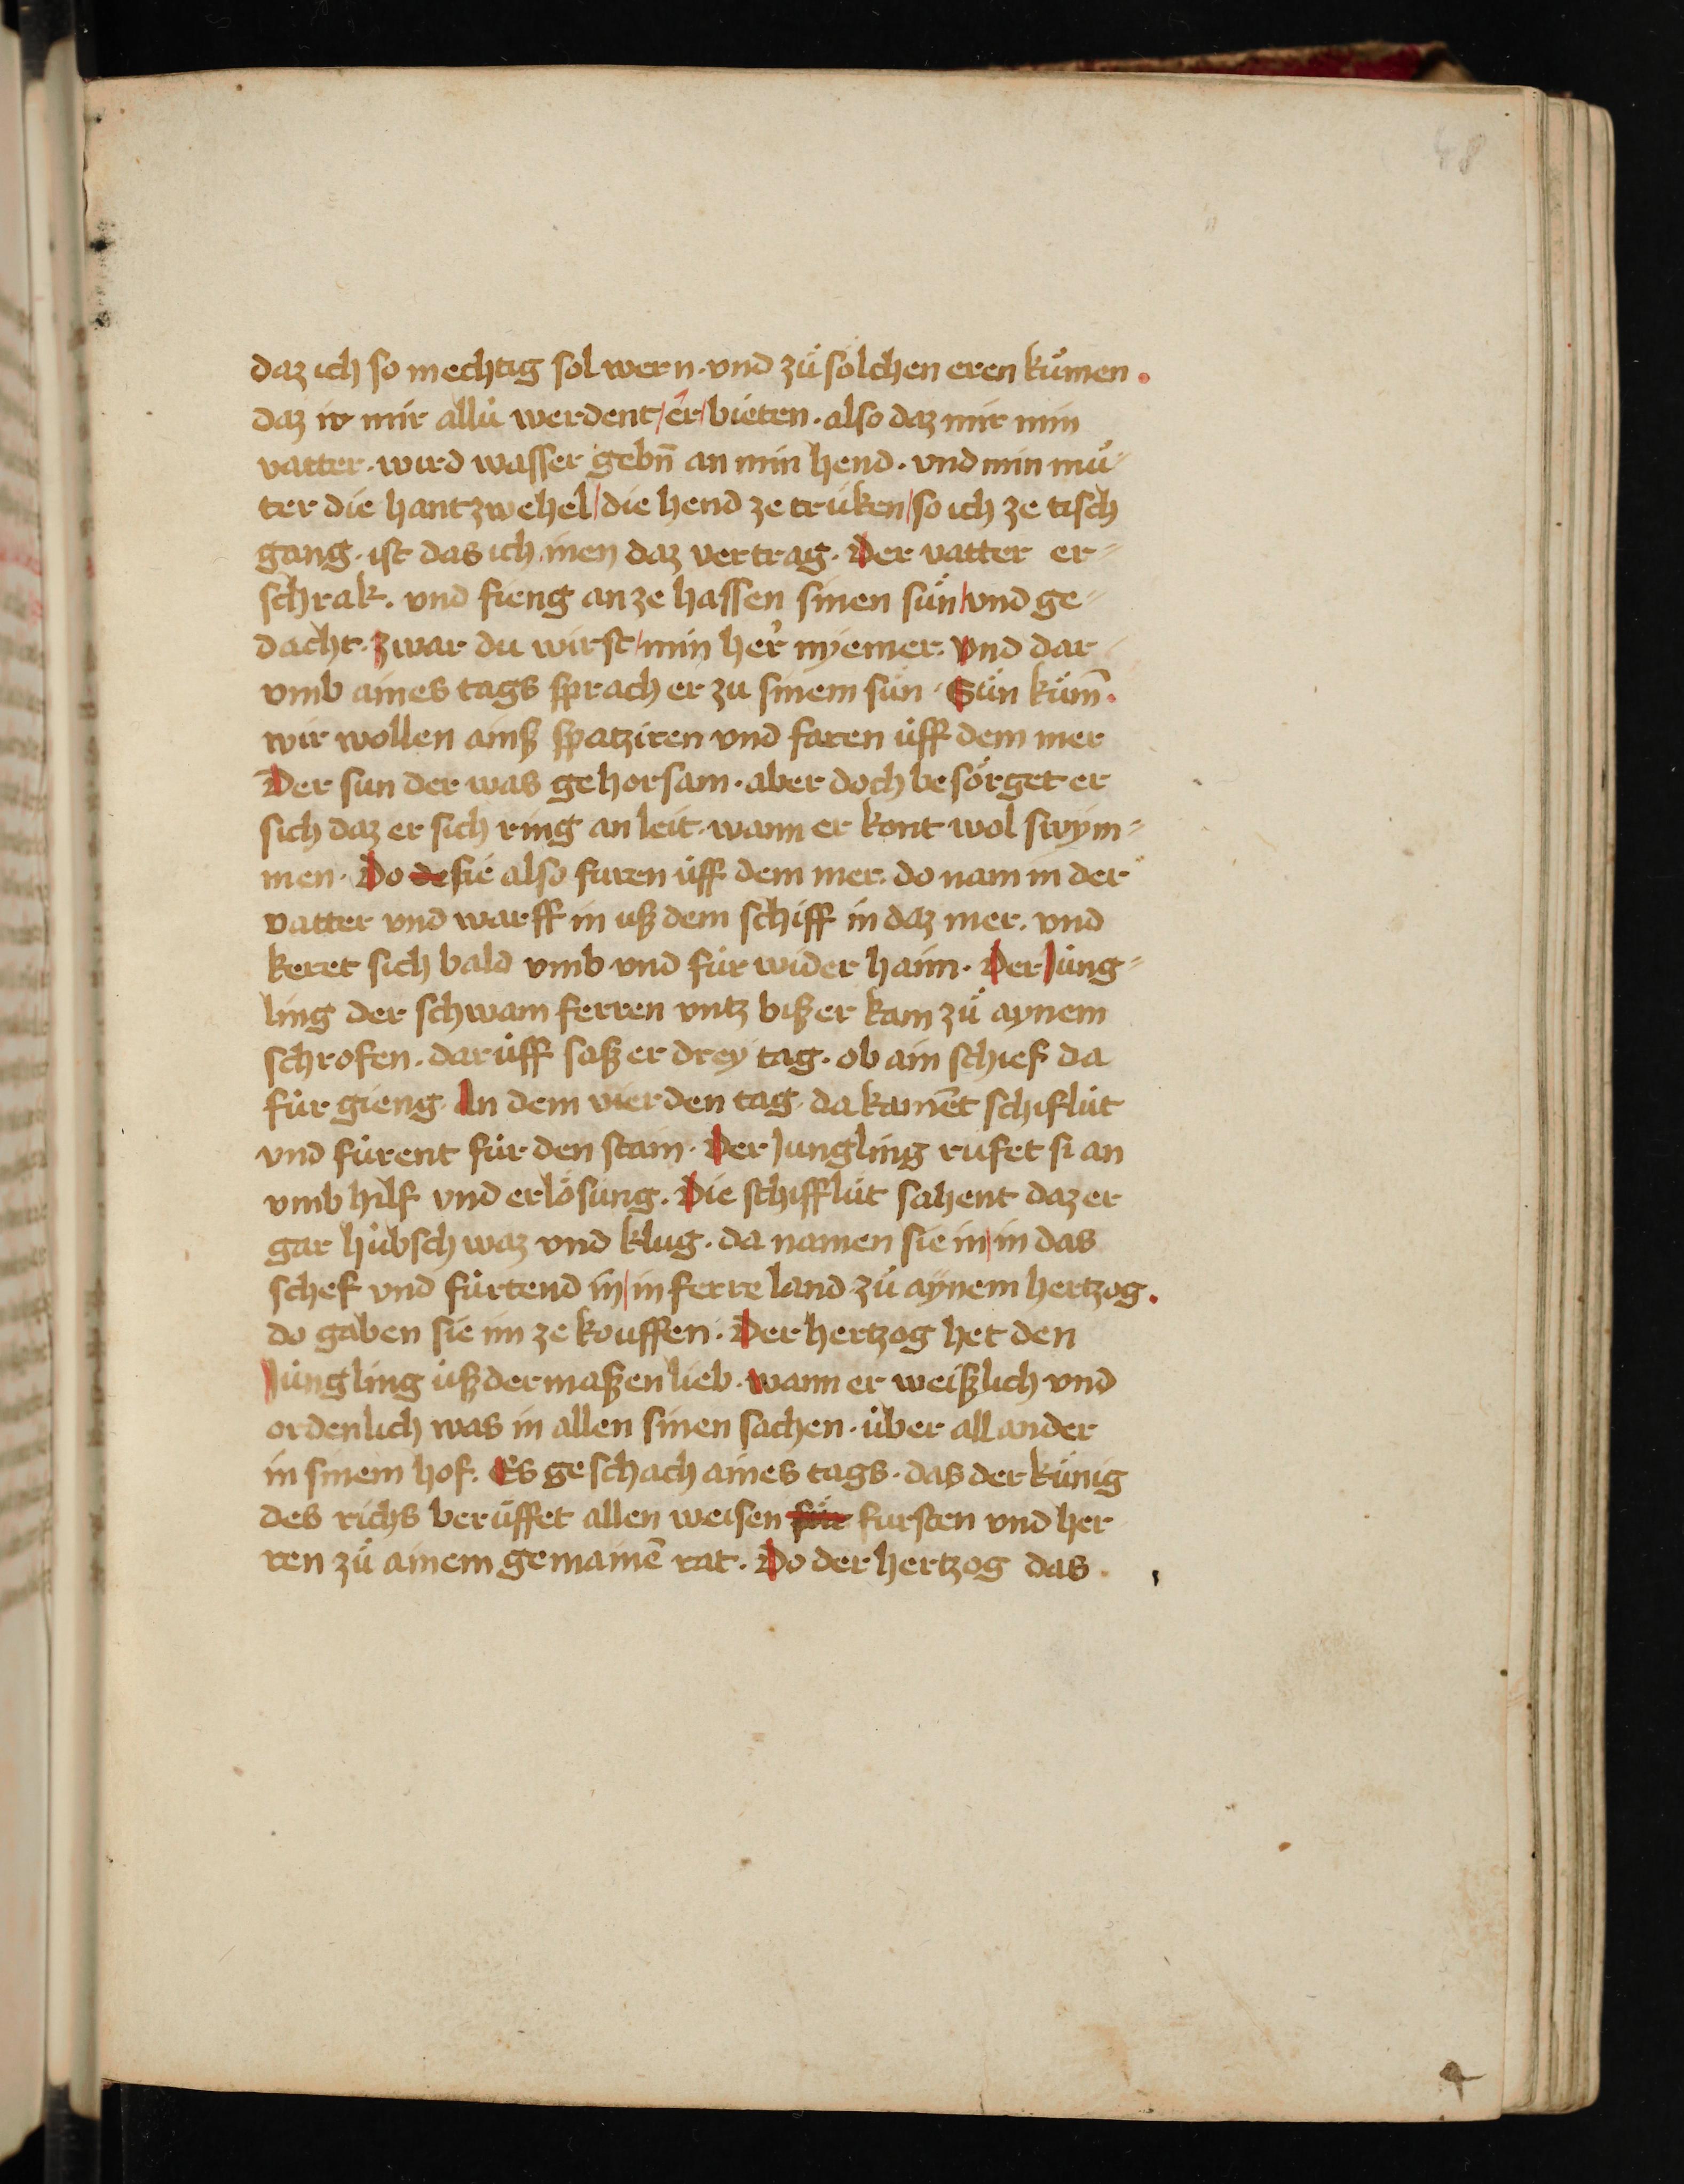 48
daz ich so mechtig sol wern · vnd zuͤ sölchen eren kuͤmen .
daz ir mir allu werdent / er / bieten · also daz mir min
vatter · wird wasser gebn̄ an min hend · vnd min muͦ⸗
ter die hantzwehel / die hend ze truken / so ich ze tisch
gang · ist das ich inen daz vertrag · Der vatter er⸗
schrak · vnd fieng an ze hassen sinen sun̈ / vnd ge⸗
dacht · zwar du wirst / min her nyemer · vnd dar
vmb aines tags sprach er zu sinem sün · Sün küm̄ .
wir wollen ainß spatziren vnd faren uͦff dem mer
Der sun der was gehorsam · aber doch besörget er
sich daz er sich ring an leit · wann er kont wol swym⸗
men · Do de sie also furen üff dem mer · do nam in der
vatter vnd warff in uß dem schiff in daz mer · vnd
keret sich bald vmb vnd für wider haim · Der Jüng⸗
ling der schwam ferren vntz biß er kam zuͤ aynem
schrofen · daruͦff saß er drey tag · ob ain schief da
für gieng · An dem vierden tag · da kamēt schiflüt
vnd fürent für den stain · Der Jungling rufet si an
vmb hilf vnd erlösüng · Die schifflüt sahent daz er
gar hübsch waz vnd klug · da namen sie in / in das
schef vnd fürtend in / in ferre land zü aynem hertzog .
do gaben sie im ze kouffen · Der hertzog het den
Jüngling üß dermaßen lieb · wann er weißlich vnd
ordenlich was in allen sinen sachen · über all ander
in sinem hof · Es geschach aines tags · das der künig
des richs berüffet allen weisen für fursten vnd her
ren zuͤ ainem gemainē rat · Do der hertzog das ·